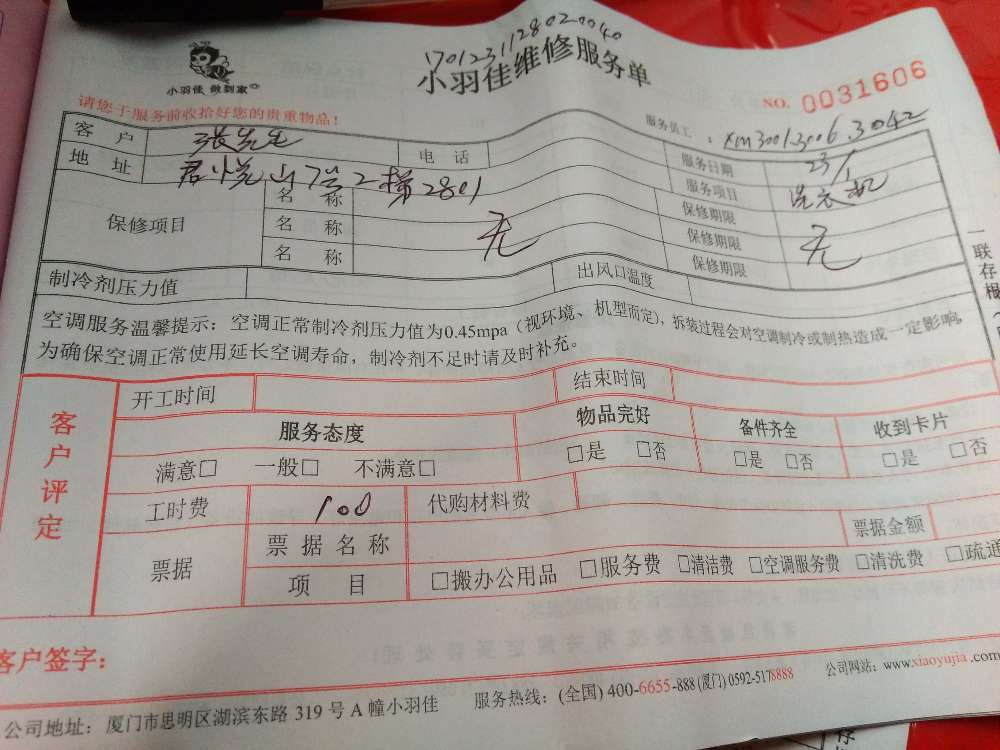 1701231128020040
小羽佳 做到家
小羽佳维修服务单
NO. 0031606
请您于服务前收拾好您的贵重物品!
服务员工: xm3001.3006.3042
客户 张先生 电话 服务日期 23/1
地址 君悦山7号2梯2801 服务项目 洗衣机
保修项目 名称 无 保修期限 无
名称 保修期限
名称 保修期限
制冷剂压力值 出风口温度
空调服务温馨提示:空调正常制冷剂压力值为0.45mpa(视环境、机型而定),拆装过程会对空调制冷或制热造成一定影响,
为确保空调正常使用延长空调寿命,制冷剂不足时请及时补充。
一联存根
客户评定
开工时间 结束时间
服务态度 物品完好 备件齐全 收到卡片
满意□ 一般□ 不满意□ □是 □否 □是 □否 □是 □否
工时费 100 代购材料费
票据 票据名称 票据金额
项目 □搬办公用品 □服务费 □清洁费 □空调服务费 □清洗费 □疏通
客户签字:
公司地址:厦门市思明区湖滨东路 319 号 A 幢小羽佳 服务热线:(全国) 400-6655-888 (厦门) 0592-5178888 公司网站:www.xiaoyujia.com